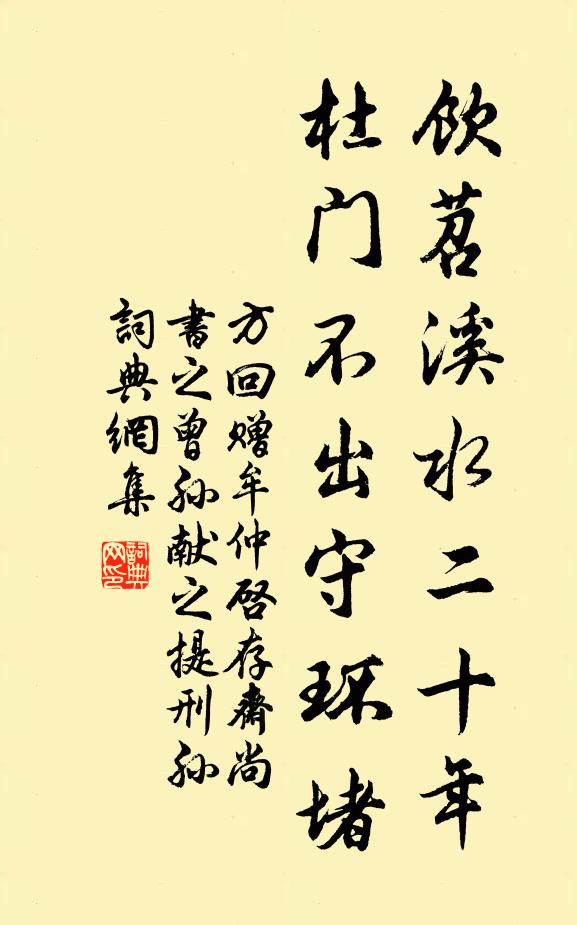 饮苕溪水二十年
杜门不出守环堵
方回赠牟仲启存斋尚
書之曾孙献之提刑孙
詞典網集
詞典网印